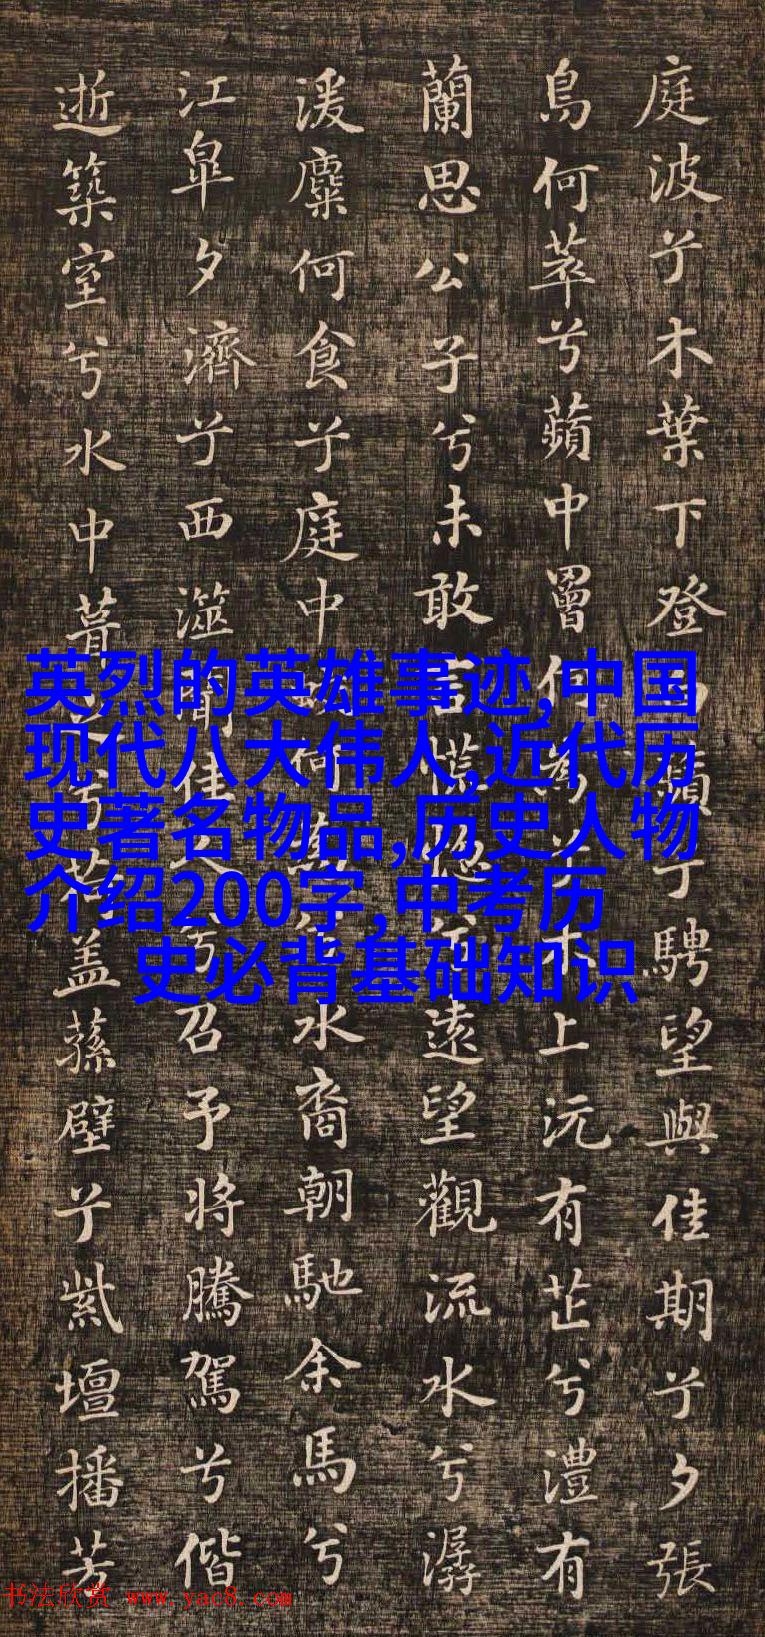 庭波兮木葉下登白蘋兮騁望與佳期兮夕張
鳥何萃兮蘋中罾何為兮木上沅有芷兮澧有
蘭思公子兮未敢言慌惚兮遠望觀流水兮潺
湲麋何食兮庭中何為兮水裔朝馳余馬兮
江皐夕濟兮西澨聞佳人兮召予將騰駕兮偕
逝築室兮水中葺之兮蓋蓀壁兮紫壇播芳
英烈的英雄事迹,中国
现代八大伟人,近代历
史著名物品,历史人物
介绍200字,中考历
史必背基础知识
书法欣赏 www.yac8.com